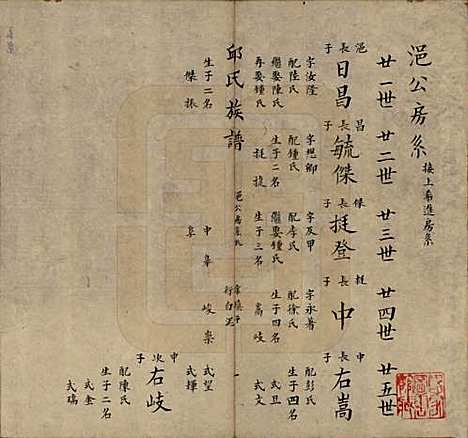 浥公房系 接上希進房系
廿一世 廿二世 廿三世 廿四世 廿五世
浥長子 日昌
字汝隆
配陸氏
繼娶陳氏
再娶鍾氏
生子二名
傑 振
昌長子 毓傑
字想卿
配鍾氏
生子二名
挺 捷
傑長子 挺登
字及甲
配李氏
繼娶鍾氏
生子三名
中 皐 阜
挺長子 中
字永著
配徐氏
生子四名
嵩 岐 峻 崇
中長子 右嵩
配彭氏
生子四名
式旦
式文
式望
式輝
中次子 右岐
配陳氏
生子二名
式金
式瑞
邱氏族譜
浥公房系